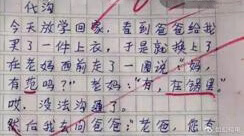 代沟
今天放学回家，看到爸爸给我
买了一件上衣，于是就换上了
在老妈面前走了一圈说："妈，
有范吗？"老妈："有，在锅里。"
哎，没法沟通了。
然后我去问爸爸："老爸，您有